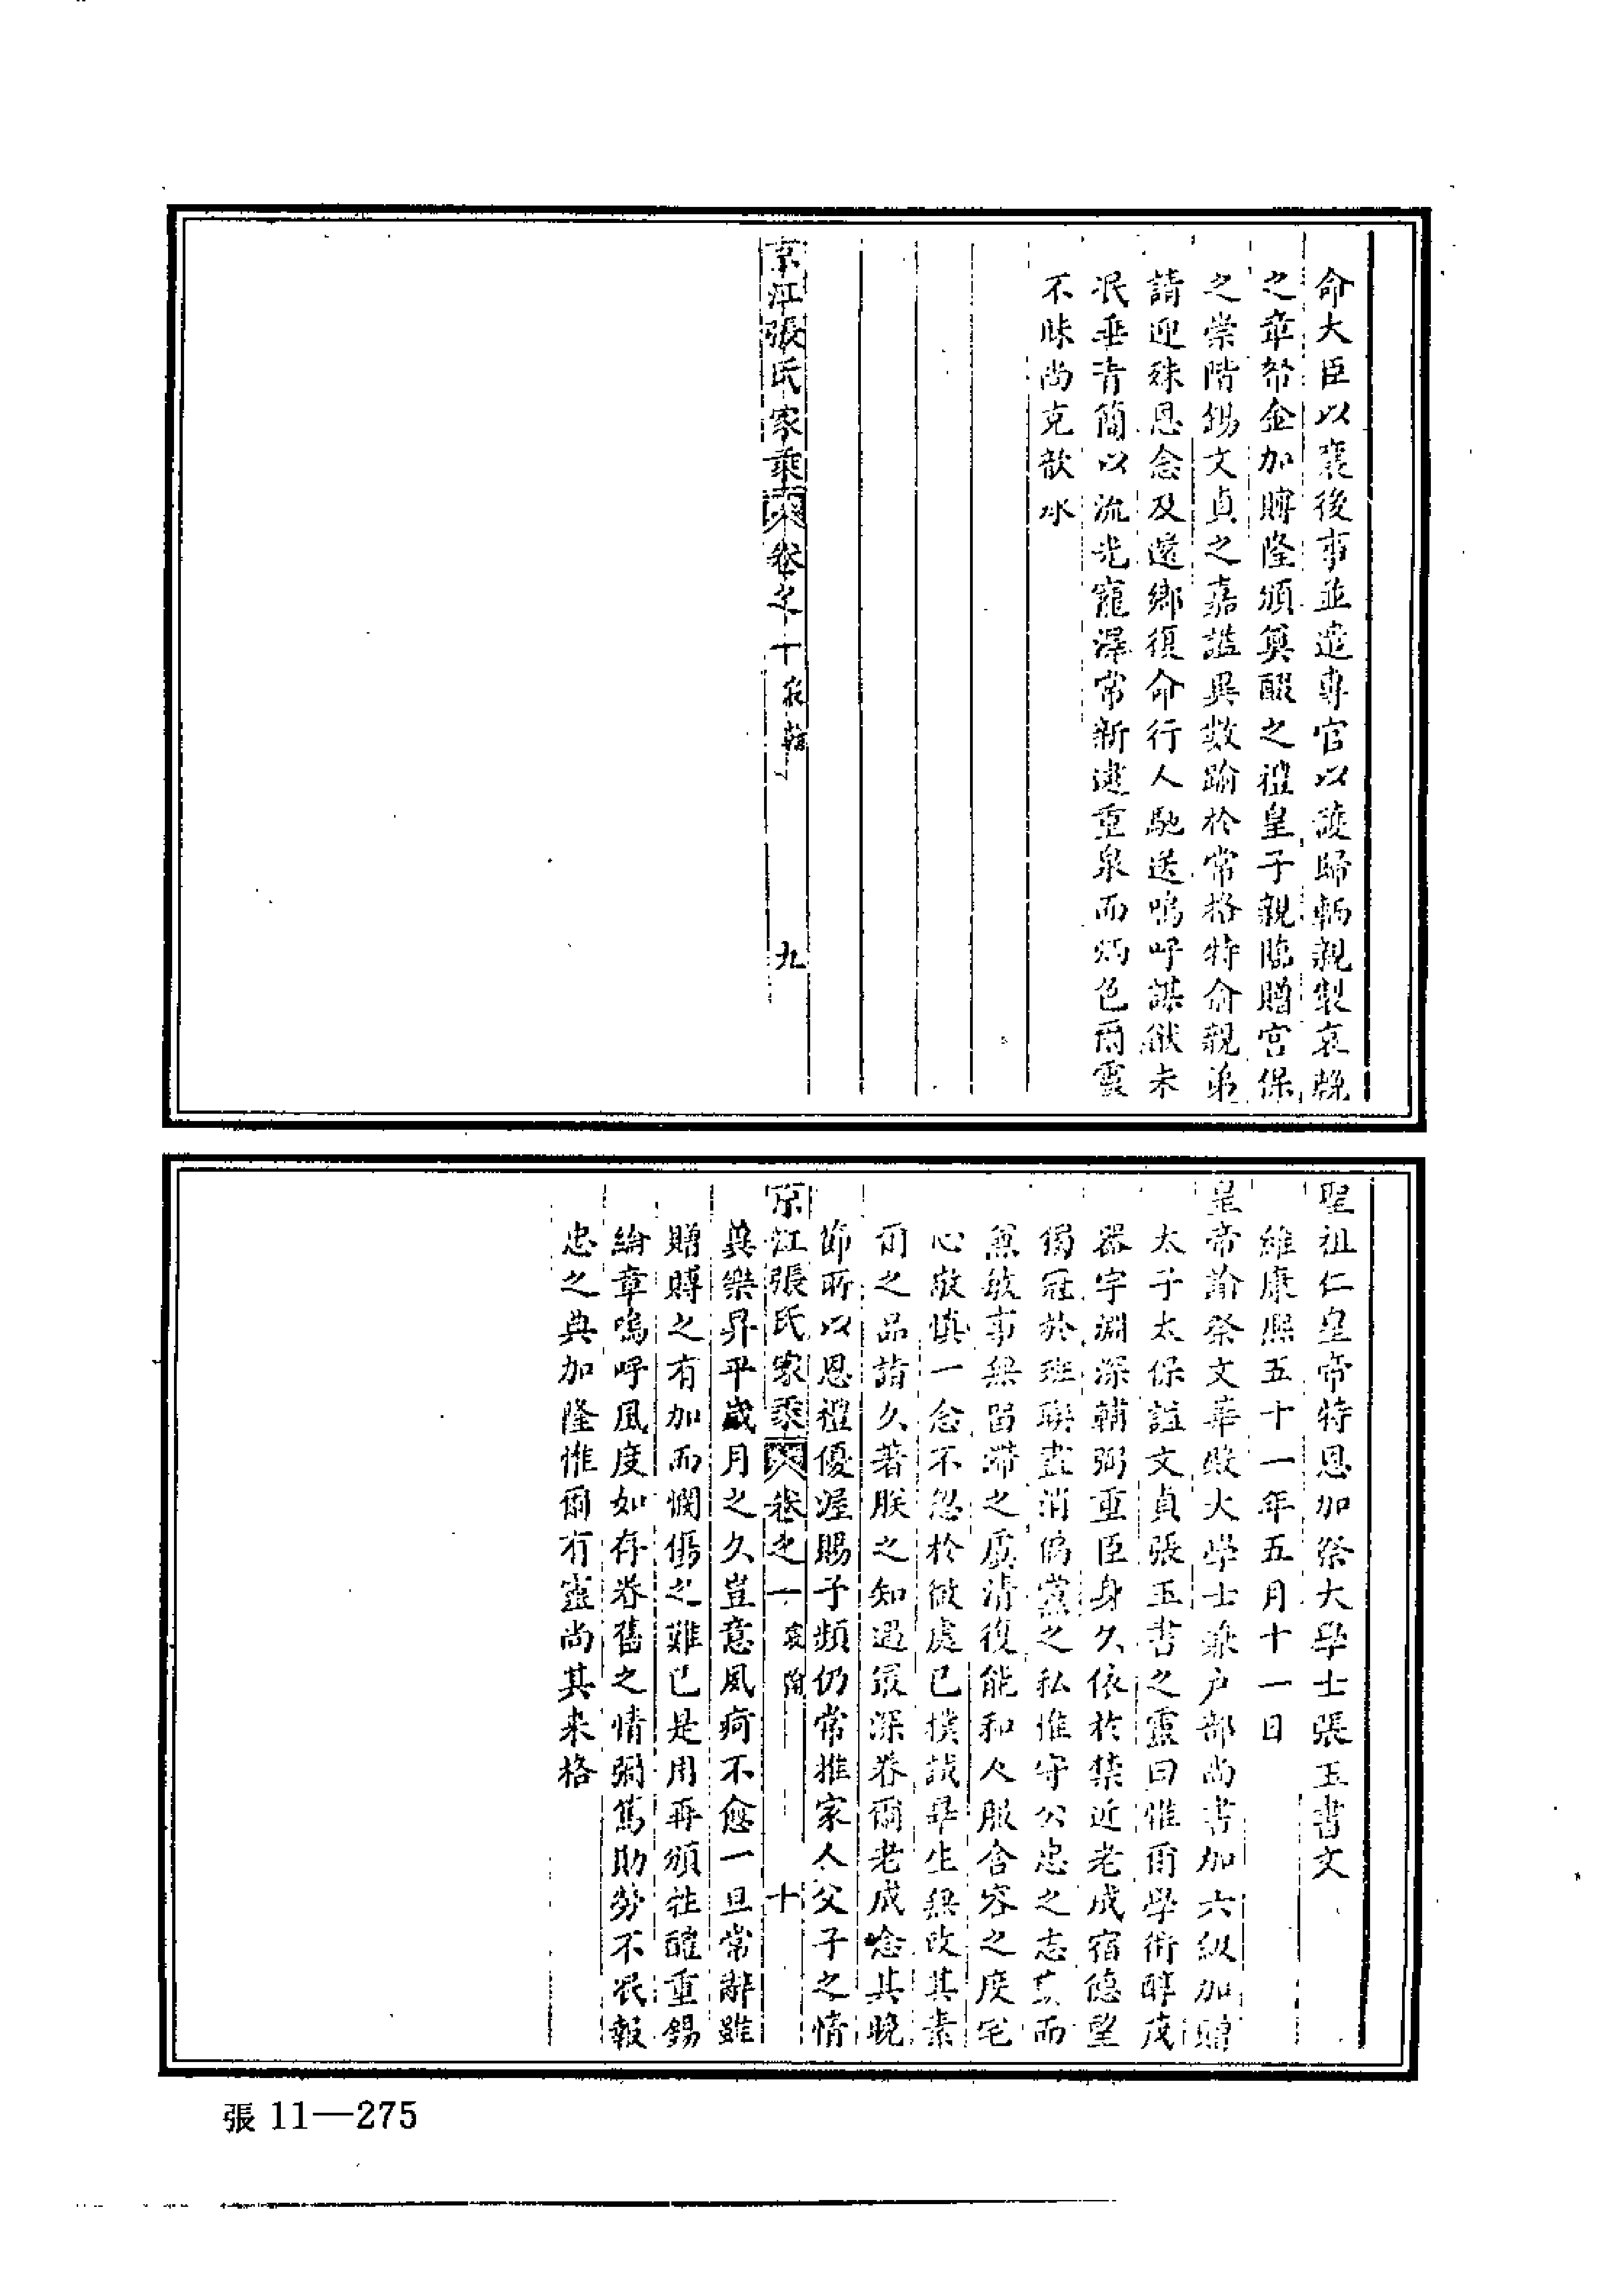 命大臣以襄後事並遣專官以護歸輀親製哀輓
之章帑金加賻隆頒奠醊之禮皇子親臨贈宮保
之崇階錫文貞之嘉諡異數踰於常格特俞親弟
請迎殊恩念及還鄉復命行人馳送嗚呼謀猷未
泯垂青簡以流光寵澤常新逮重泉而炳色爾靈
不昧尚克歆承
京江張氏家乘 卷之十 宸翰 九
聖祖仁皇帝特恩加祭大學士張玉書文
維康熙五十一年五月十一日
皇帝諭祭文華殿大學士兼户部尚書加六級加贈
太子太保諡文貞張玉書之靈曰惟爾學術醇茂
器宇淵深輔弼重臣身久依於禁近老成宿德望
獨冠於班聯盡消偏黨之私惟守公忠之志 而
兼敏事無留滯之虞清復能和人服含容之度宅
心敬慎一念不忽於微處已樸誠畢生無改其素
爾之品詣久著朕之知遇最深眷爾老成唸其晚
節所以恩禮優渥賜予頻仍常推家人父子之情
京江張氏家乘 卷之十 宸翰 十
冀樂昇平歲月之久豈意風疴不愈一旦常辭雖
贈賻之有加而憫傷之難已是用再頒牲醴重錫
綸章嗚呼風度如存眷舊之情彌篤助勞不泯報
忠之典加隆惟爾有靈尚其来格
張 11—275